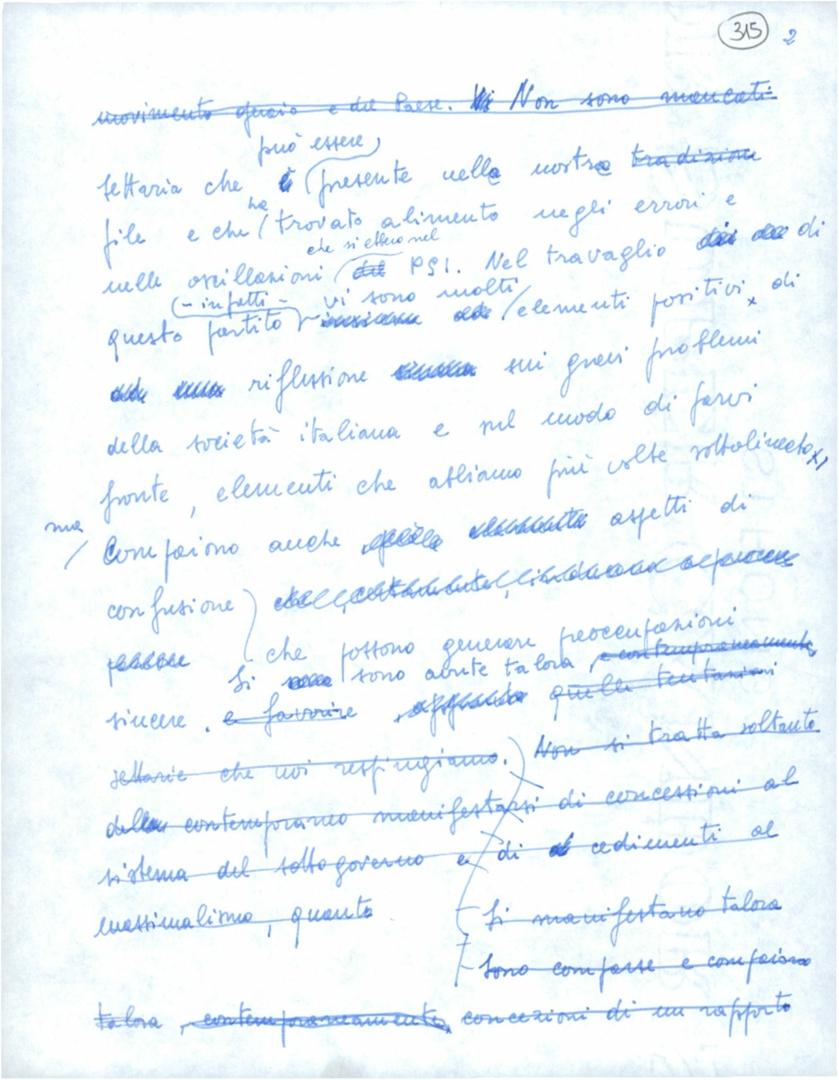 315 2
movimento operaio e del Paese. Non sono mancati
può essere
settaria che è presente nelle nostre tradizioni
ha
file e che trovato alimento negli errori e
che si ebbero nel
nelle oscillazioni del PSI. Nel travaglio di
- infatti - vi sono molti
questo partito elementi positivi, di
riflessione sui gravi problemi
della società italiana e sul modo di farvi
fronte, elementi che abbiamo più volte sottolineato,
ma
Compaiono anche aspetti di
confusione
che possono generare preoccupazioni
Si sono avute talora, e contemporaneamente
sincere. e favorire quelle tentazioni
settarie che noi respingiamo. Non si tratta soltanto
del contemporaneo manifestarsi di concessioni al
sistema del sottogoverno e di cedimenti al
massimalismo, quanto
Si manifestano talora
Sono comparse e compaiono
talora, contemporaneamente, concezioni di un rapporto